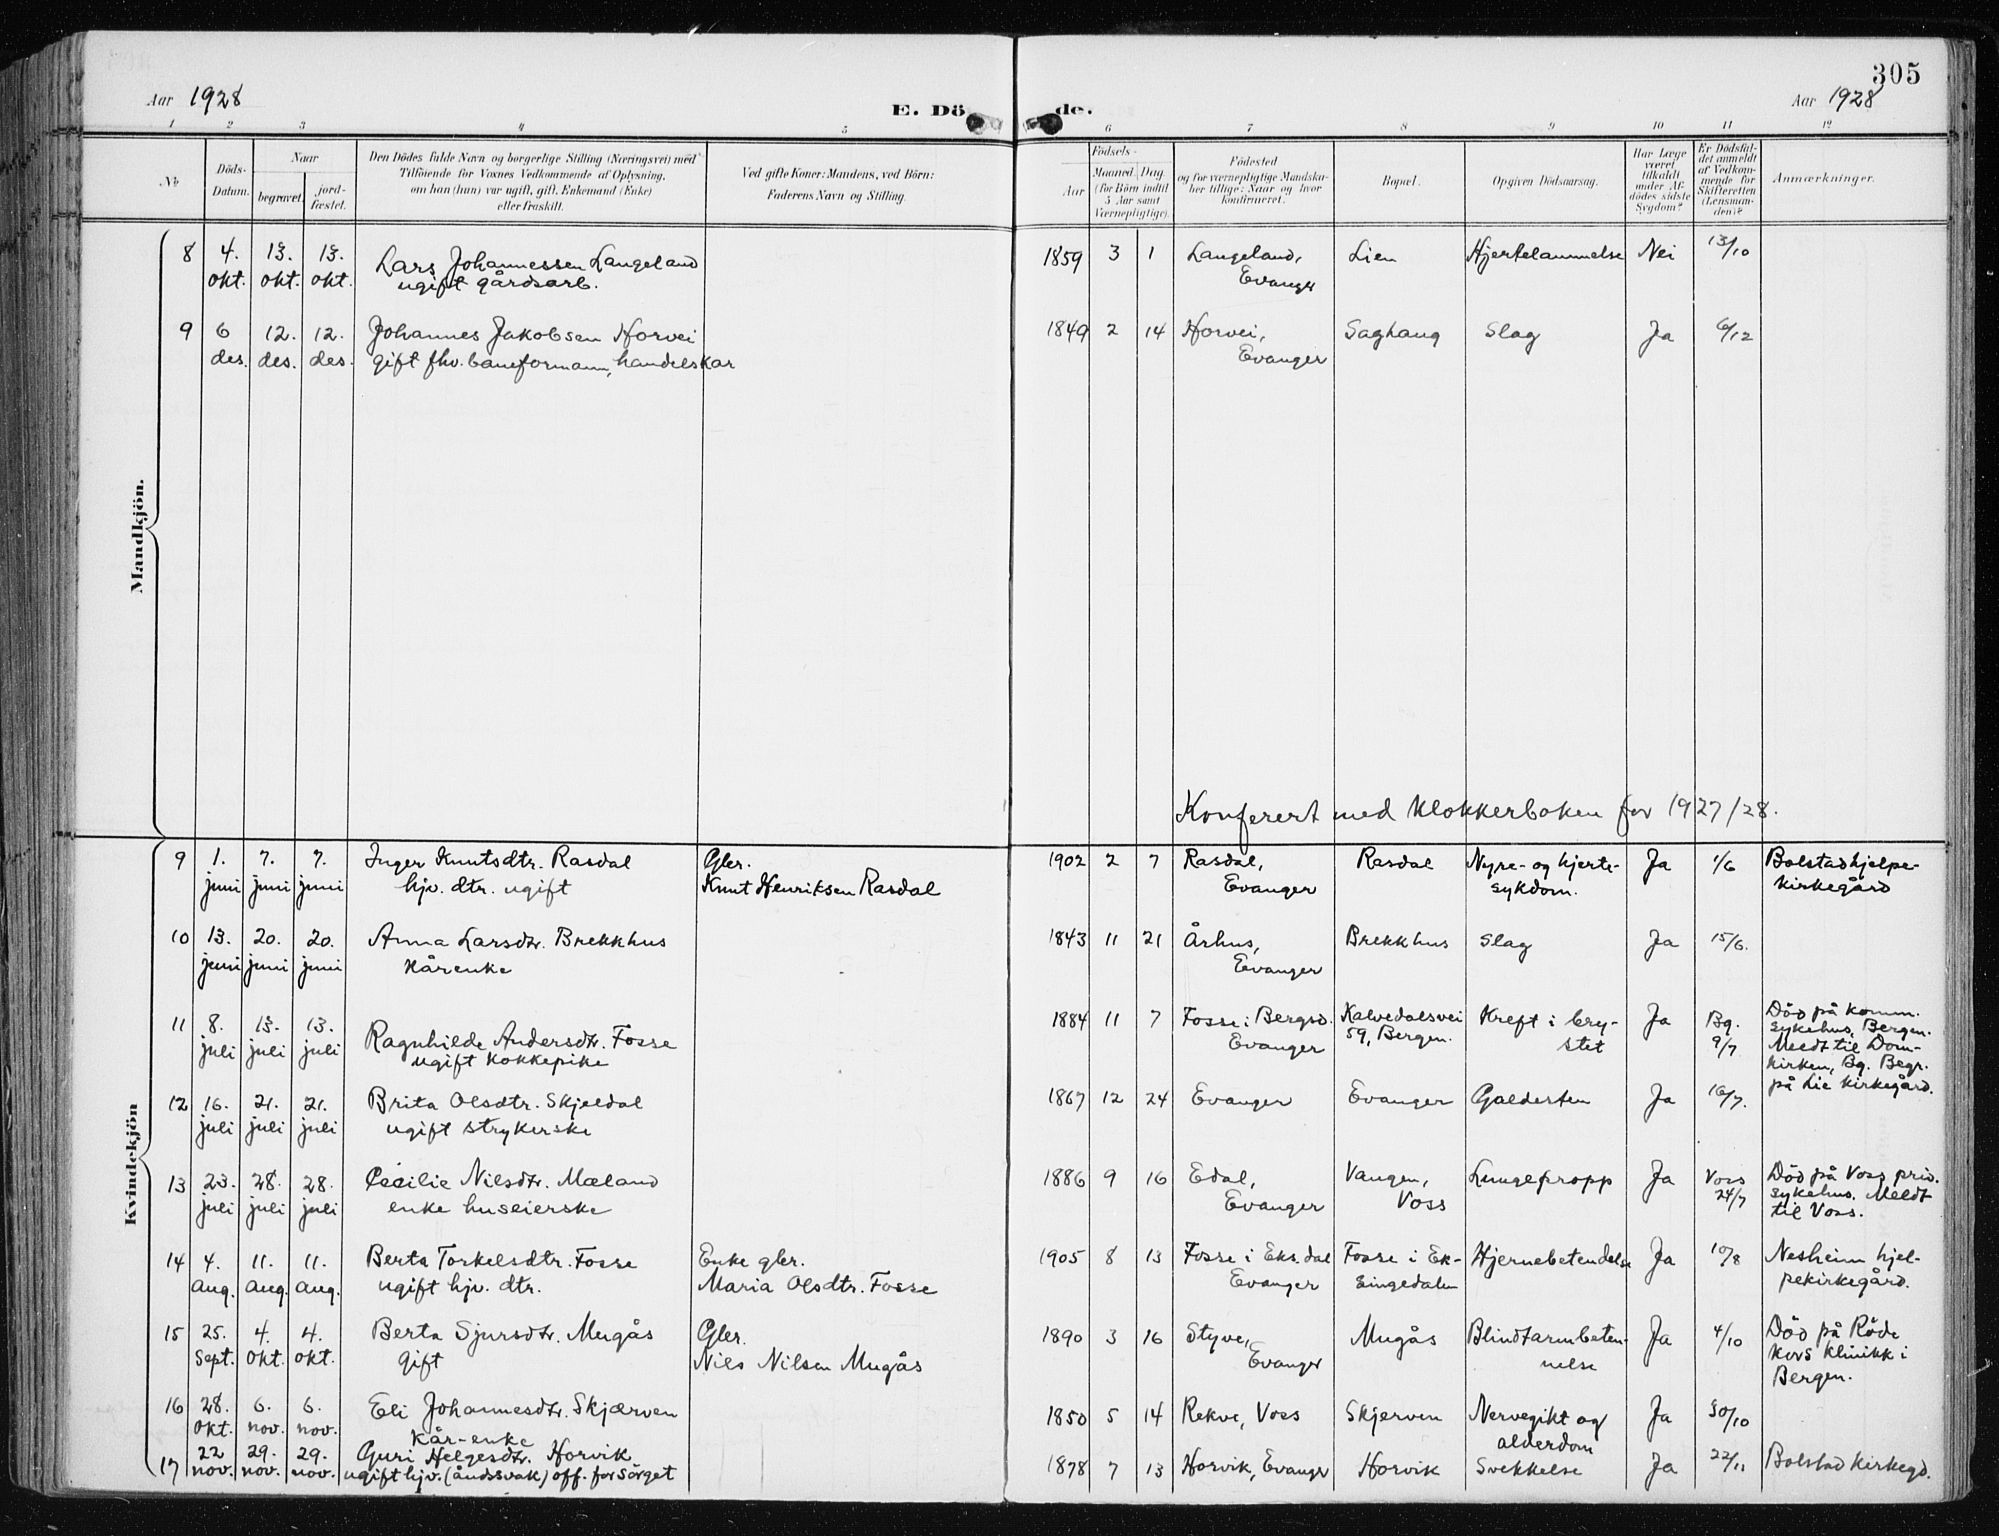 305
Aar 1928
E. Dö de.
Aar 1928
1 2 3 4 5 6 7 8 9 10 11 12
No
Döds-Datum.
Naar
begravet.
jord-fæstet.
Den Dödes fulde Navn og borgerlige Stilling (Næringsvei) med
Tilföiende for Voxnes Vedkommende af Oplysning,
om han (hun) var ugift, gift, Enkemand (Enke)
eller fraskilt.
Ved gifte Koner: Mandens, ved Börn:
Faderens Navn og Stilling.
Födsels-
Aar
Maaned. Dag.
(for Börn indtil
5 Aar samt
Værnepligtige).
Födested
og for værnepligtige Mandsku-
ber tillige: Naar og hvor
konfirmeret.
Bopæl.
Opgiven Dödsaarsag.
Har Læge
været
tilkaldt
under Af-
dödes sidste
Sygdom?
Er Dödsfal-
det anmeldt
af Vedkom-
mende for
Skifteretten
(Lensman-
den)?
Anmærkninger.
Mandkjön.
8 4. 13. 13. Lars Johannessen Langeland 1859 3 1 Langeland, Lien Hjertelammelse Nei 13/10
okt. okt. okt. ugift gårdsarb. Evanger
9 6 12. 12. Johannes Jakobsen Horvei 1849 2 14 Horvei, Saghaug Slag Ja 6/12
des. des. des. gift fhv. baneformann, handelskar Evanger
Konferert med klokkerboken for 1927/28.
Kvindekjön
9 1. 7. 7. Inger Knutsdtr. Rasdal Gbr. 1902 2 7 Rasdal, Rasdal Nyre- og hjerte- Ja 1/6 Bolstad hjelpe-
juni juni juni hjv. dtr. ugift Knut Henriksen Rasdal Evanger sykdom. kirkegård
10 13. 20. 20. Anna Larsdtr. Brekkhus 1843 11 21 Århus, Brekkhus Slag Ja 15/6.
juni juni juni kårenke Evanger
11 8. 13. 13. Ragnhilde Andersdtr. Fosse 1884 11 7 Fosse i Bergsd. Kalvedalsvei Kreft i bry- Ja Bg. Död på komm.
juli juli juli ugift kokkepike Evanger 59, Bergen. stet 9/7 sykehus, Bergen.
Meldt til Dom-
kirken, Bg. Begr.
på Lie kirkegård.
12 16. 21. 21. Brita Olsdtr. Skjeldal 1867 12 24 Evanger Evanger Galdesten Ja 16/7.
juli juli juli ugift strykerske
13 23. 28. 28. Cecilie Nilsdtr. Mæland 1886 9 16 Edal, Vangen, Lungepropp Ja Voss Död på Voss priv.
juli juli juli enke huseierske Evanger Voss 24/7 sykehus. Meldt
til Voss.
14 4. 11. 11. Berta Torkelsdtr. Fosse Enke gbr. 1905 8 13 Fosse i Eks.dal Fosse i Ek- Hjernebetendelse Ja 10/8 Nesheim hjel-
aug. aug. aug. ugift hjv. dtr. Maria Olsdtr. Fosse Evanger singedalen pekirkegård.
15 25. 4. 4. Berta Sjursdtr. Mugås Gbr. 1890 3 16 Styve, Mugås Blindtarmbeten- Ja 4/10 Död på Röde
sept. okt. okt. gift Nils Nilsen Mugås Evanger nelse kors klinikk i
Bergen.
16 28. 6. 6. Eli Johannesdtr. Skjærven 1850 5 14 Rekve, Voss Skjerven Nervegikt og Ja 30/10
okt. nov. nov. kår-enke alderdom
17 22 29. 29. Guri Helgesdtr. Horvik 1878 7 13 Horvik, Evanger Horvik Svekkelse Ja 22/11 Bolstad kirkegd.
nov. nov. nov. ugift hjv. (åndssvak) off. forsörget